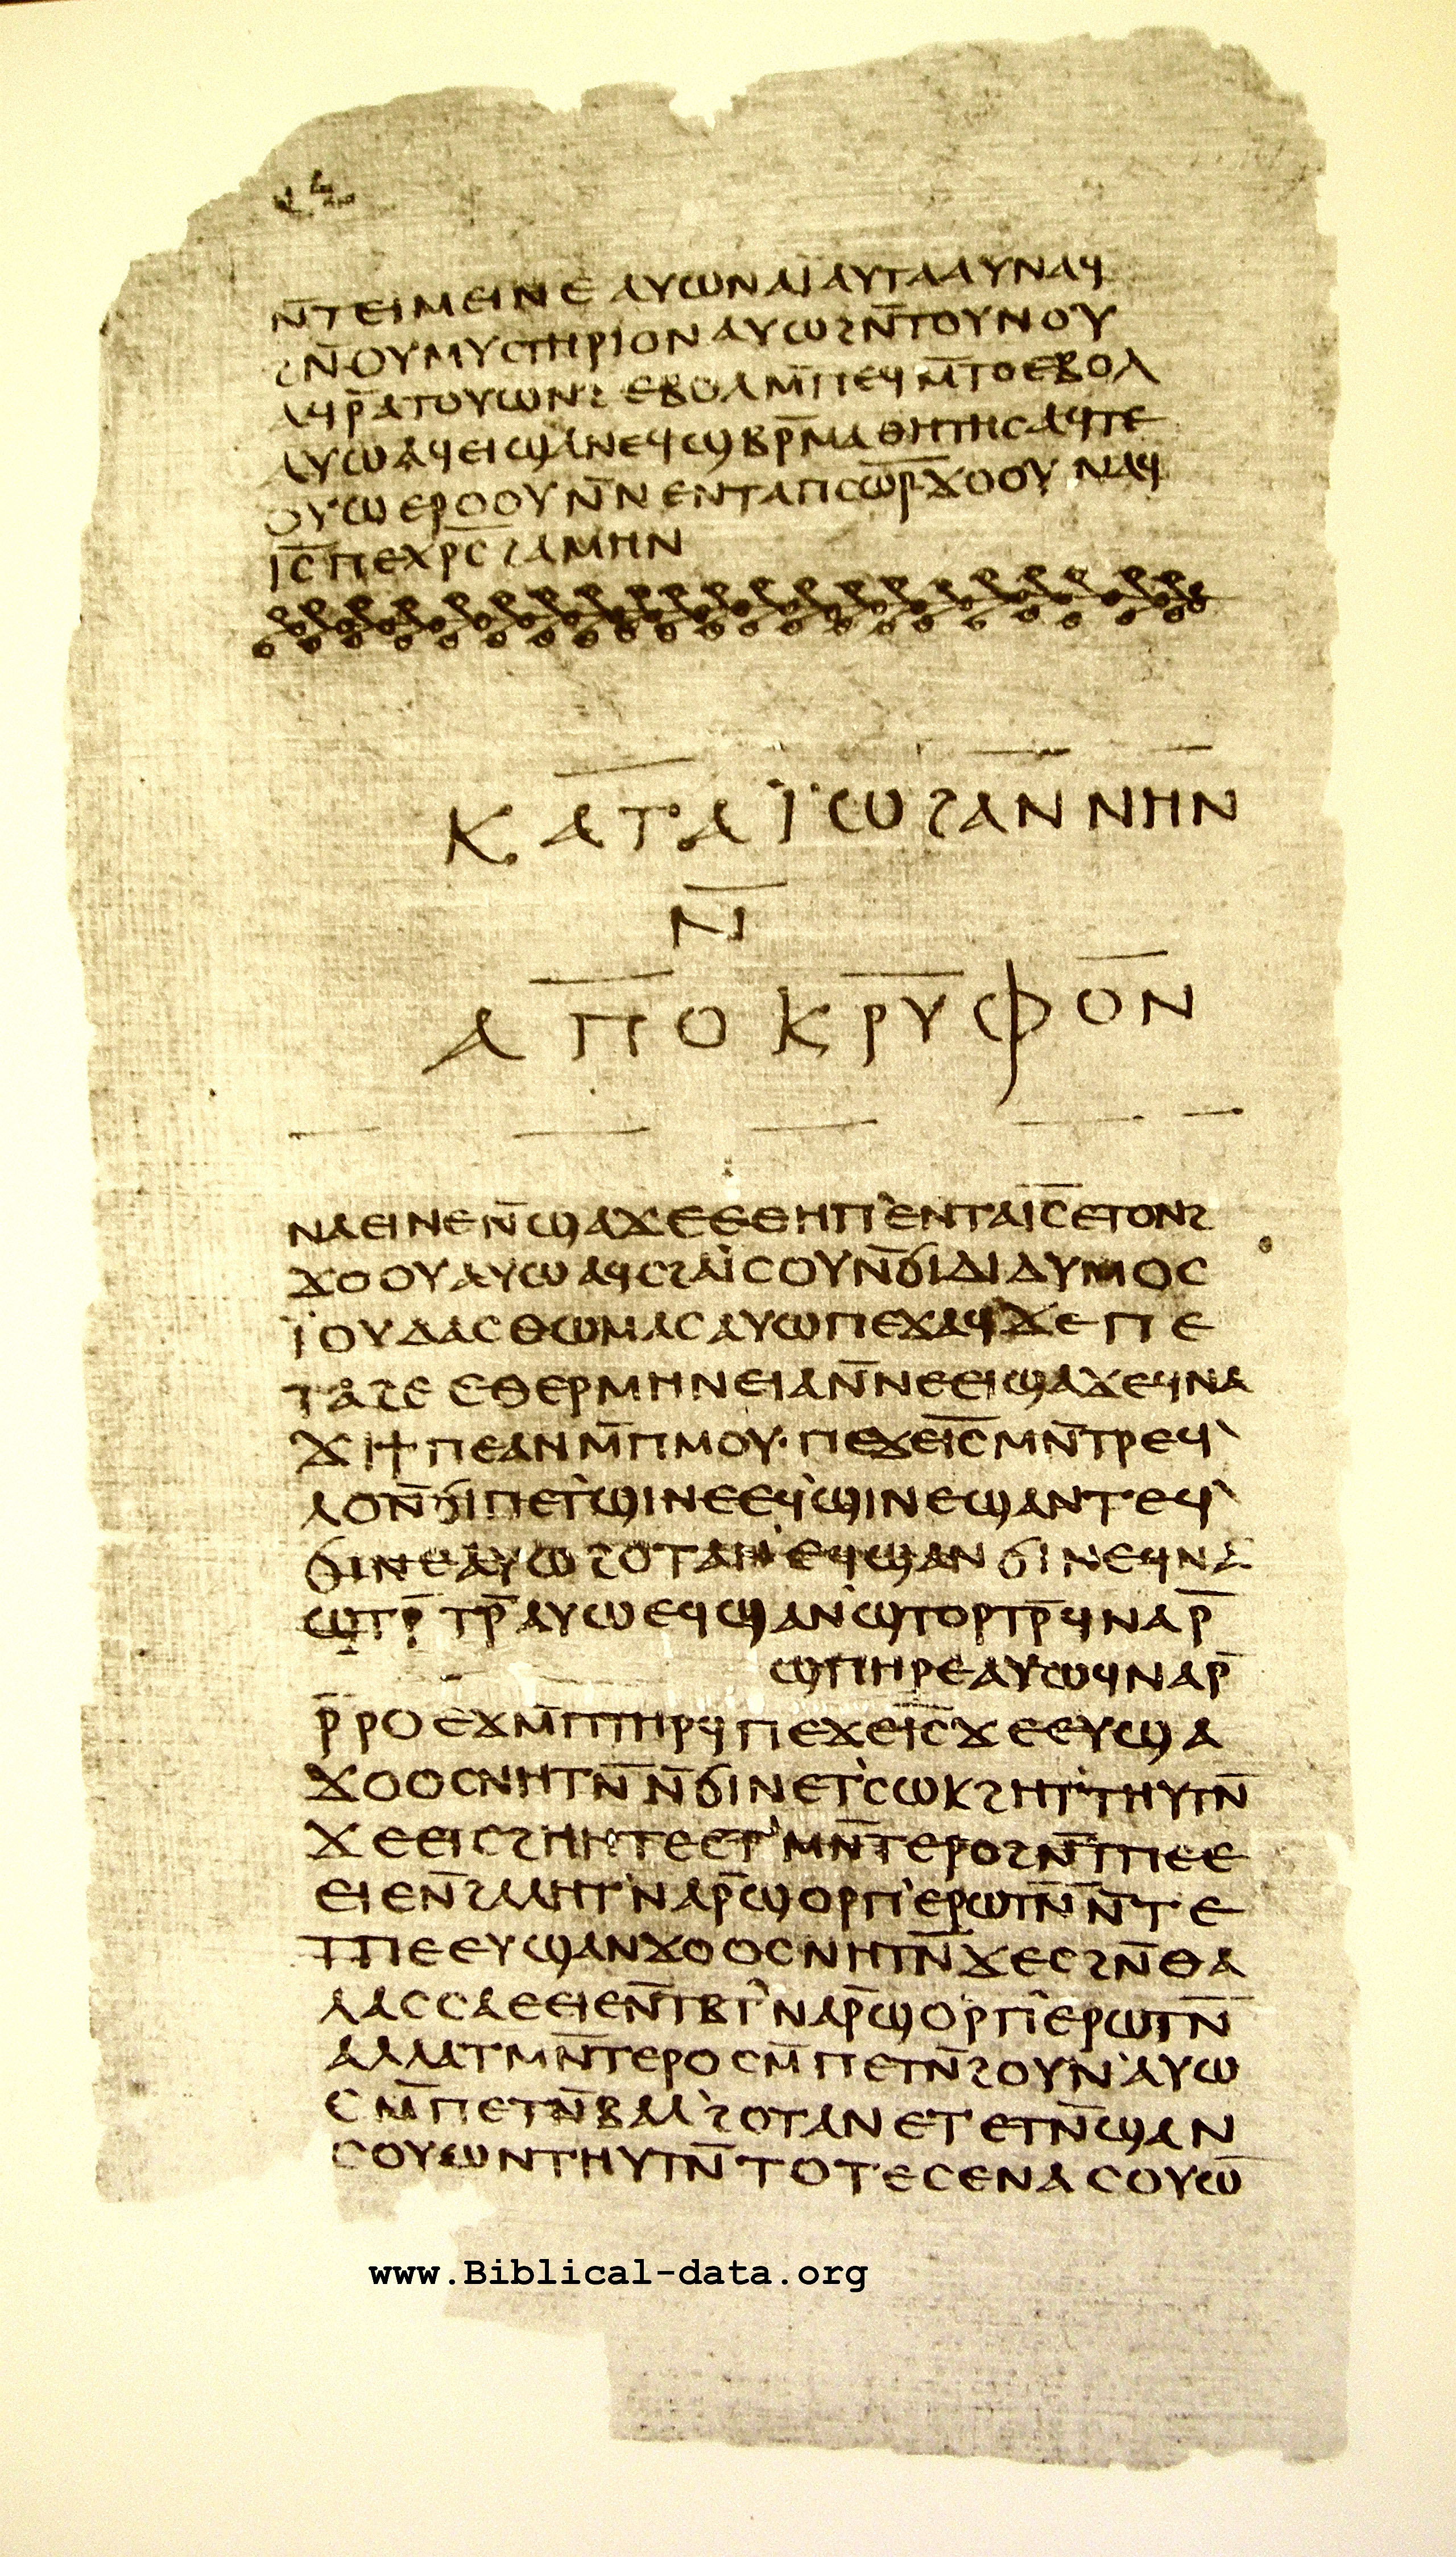 ⲛ̄ⲧⲉⲓⲙⲉⲓⲛⲉ ⲁⲩⲱ ⲛⲁⲓ̈ ⲁⲩⲧⲁⲁⲩ ⲛⲁϥ
ϩⲛ̄ ⲟⲩⲙⲩⲥⲧⲏⲣⲓⲟⲛ ⲁⲩⲱ ϩⲛ̄ ⲧⲟⲩⲛⲟⲩ
ⲁϥⲣ̄ ⲁⲧⲟⲩⲱⲛϩ ⲉⲃⲟⲗ ⲙ̄ⲡⲉϥⲙ̄ⲧⲟ ⲉⲃⲟⲗ
ⲁⲩⲱ ⲁϥⲉⲓ ϣⲁ ⲛⲉϥϣⲃⲣ̄ⲙⲁⲑⲏⲧⲏⲥ ⲁϥⲧⲉ
ⲟⲩⲱ ⲉⲣⲟⲟⲩ ⲛ̄ⲛⲉⲛⲧⲁ ⲡⲥⲱ̄ⲣ̄ ϫⲟⲟⲩ ⲛⲁϥ
ⲓ̄ⲥ̄ ⲡⲉⲭ̄ⲣ̄ⲥ̄ ϩⲁⲙⲏⲛ
ⲕⲁⲧⲁ ⲓ̈ⲱϩⲁⲛⲛⲏⲛ
ⲛ̄
ⲁⲡⲟⲕⲣⲩⲫⲟⲛ
ⲛⲁⲉⲓ ⲛⲉ ⲛ̄ϣⲁϫⲉ ⲉⲑⲏⲡ' ⲉⲛⲧⲁ ⲓ̄ⲥ̄ ⲉⲧⲟⲛϩ
ϫⲟⲟⲩ ⲁⲩⲱ ⲁϥⲥϩⲁⲓ̈ⲥⲟⲩ ⲛ̄ϭⲓ ⲇⲓⲇⲩⲙⲟⲥ
ⲓ̈ⲟⲩⲇⲁⲥ ⲑⲱⲙⲁⲥ ⲁⲩⲱ ⲡⲉϫⲁϥ ϫⲉ ⲡⲉ
ⲧⲁϩⲉ ⲉⲑⲉⲣⲙⲏⲛⲉⲓⲁ ⲛ̄ⲛⲉⲉⲓϣⲁϫⲉ ϥⲛⲁ
ϫⲓϯⲡⲉ ⲁⲛ ⲙ̄ⲡⲙⲟⲩ· ⲡⲉϫⲉ ⲓ̄ⲥ̄ ⲙⲛ̄ⲧⲣⲉϥ'
ⲗⲟ ⲛ̄ϭⲓ ⲡⲉⲧ'ϣⲓⲛⲉ ⲉϥ'ϣⲓⲛⲉ ϣⲁⲛⲧⲉϥ'
ϭⲓⲛⲉ ⲁⲩⲱ ϩⲟⲧⲁⲛ' ⲉϥϣⲁⲛϭⲓⲛⲉ ϥⲛⲁ
ϣⲧⲣ̄ⲧⲣ̄ ⲁⲩⲱ ⲉϥϣⲁⲛ'ϣⲧⲟⲣⲧⲣ̄ ϥⲛⲁⲣ̄
ϣⲡⲏⲣⲉ ⲁⲩⲱ ϥⲛⲁⲣ̄
ⲣ̄ⲣⲟ ⲉϫⲙ̄ ⲡⲧⲏⲣϥ ⲡⲉϫⲉ ⲓ̄ⲥ̄ ϫⲉ ⲉⲩϣⲁ
ϫⲟⲟⲥ ⲛⲏⲧⲛ̄ ⲛ̄ϭⲓ ⲛⲉⲧ'ⲥⲱⲕ ϩⲏⲧ'ⲧⲏⲩⲧⲛ̄
ϫⲉ ⲉⲓⲥϩⲏⲏⲧⲉ ⲉⲧ'ⲙⲛ̄ⲧⲉⲣⲟ ϩⲛ̄ ⲧⲡⲉ ⲉ
ⲉⲓⲉ ⲛ̄ϩⲁⲗⲏⲧ' ⲛⲁⲣ̄ ϣⲟⲣⲡ' ⲉⲣⲱⲧⲛ̄ ⲛ̄ⲧⲉ
ⲧⲡⲉ ⲉⲩϣⲁⲛϫⲟⲟⲥ ⲛⲏⲧⲛ̄ ϫⲉ ⲥϩⲛ̄ ⲑⲁ
ⲗⲁⲥⲥⲁ ⲉⲉⲓⲉ ⲛ̄ⲧⲃⲧ' ⲛⲁⲣ̄ ϣⲟⲣⲡ' ⲉⲣⲱⲧⲛ̄
ⲁⲗⲗⲁ ⲧⲙⲛ̄ⲧⲉⲣⲟ ⲥⲙ̄ⲡⲉⲧⲛ̄ϩⲟⲩⲛ' ⲁⲩⲱ
ⲥⲙ̄ⲡⲉⲧⲛ̄ⲃⲁⲗ' ϩⲟⲧⲁⲛ ⲉⲧⲉⲧⲛ̄ϣⲁⲛ
ⲥⲟⲩⲱⲛ ⲧⲏⲩⲧⲛ̄ ⲧⲟⲧⲉ ⲥⲉⲛⲁⲥⲟⲩⲱ
www.Biblical-data.org